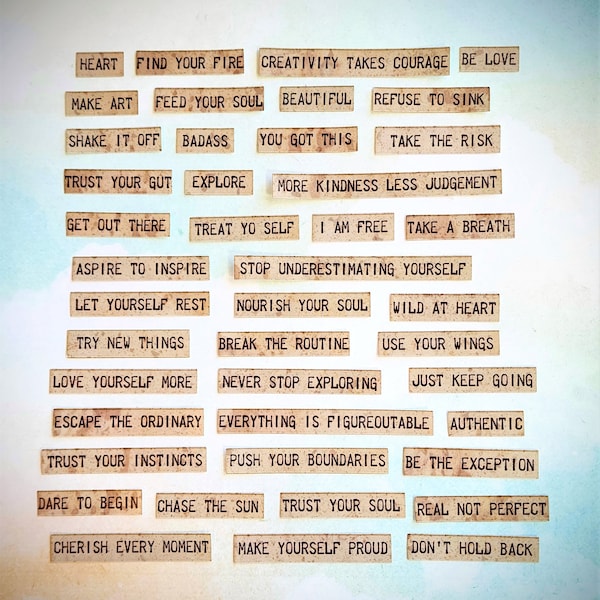 HEART FIND YOUR FIRE CREATIVITY TAKES COURAGE BE LOVE
MAKE ART FEED YOUR SOUL BEAUTIFUL REFUSE TO SINK
SHAKE IT OFF BADASS YOU GOT THIS TAKE THE RISK
TRUST YOUR GUT EXPLORE MORE KINDNESS LESS JUDGEMENT
GET OUT THERE TREAT YO SELF I AM FREE TAKE A BREATH
ASPIRE TO INSPIRE STOP UNDERESTIMATING YOURSELF
LET YOURSELF REST NOURISH YOUR SOUL WILD AT HEART
TRY NEW THINGS BREAK THE ROUTINE USE YOUR WINGS
LOVE YOURSELF MORE NEVER STOP EXPLORING JUST KEEP GOING
ESCAPE THE ORDINARY EVERYTHING IS FIGUREOUTABLE AUTHENTIC
TRUST YOUR INSTINCTS PUSH YOUR BOUNDARIES BE THE EXCEPTION
DARE TO BEGIN CHASE THE SUN TRUST YOUR SOUL REAL NOT PERFECT
CHERISH EVERY MOMENT MAKE YOURSELF PROUD DON'T HOLD BACK